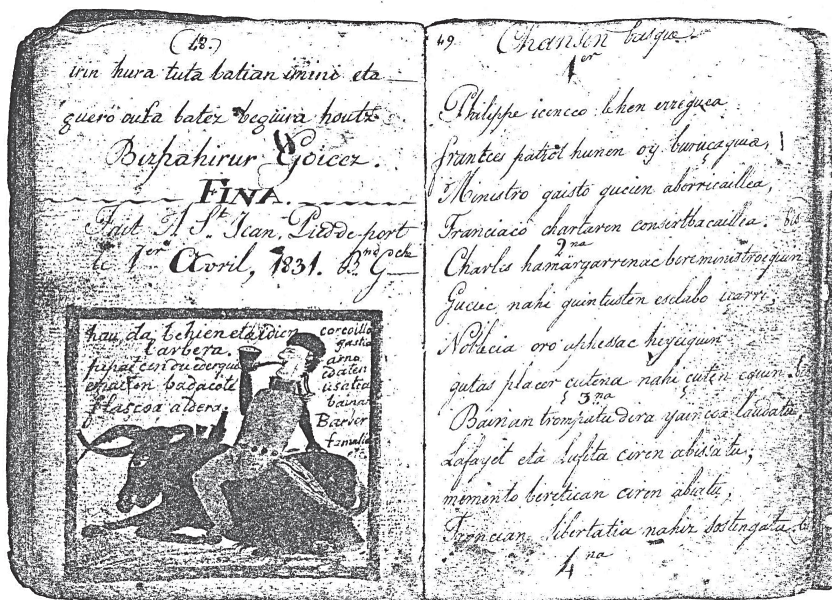 (48.)
irin hura tuta batian imini eta
guero aufa batez begüira houtz
Bizpahirur Goicez.
FINA.
Fait A St. Jean. Pied de port
le 1er Avril, 1831. Bnd Gch
hau da behien eta idien
barbera.
flascoa aldera.
corcoilla
gastia
arno
edaten
usatia
baina
Barber
famatia
etc.
49 Chanson basque
1er
Philippe icenceo lehen erreguea
frantces patriot hunen oy buruçaguia,
Ministro gaisto gucien aborricaillea,
Franciaco chartaren conserbaçaillea. bis
2na
Charles hamargarrenac bere ministroequin
Gucuc nahi guintusten esclabo içarri,
Noblecia oro aphessac heyequin
gutas placer cutena nahi çuten eguin.
3na
Bainan trompatu dera yaincoa laudatu,
Lafayet eta Lafita ciren abissatu;
memento beretican ciren abiatu,
Francian libertatia nahiz sostengatu.
4na